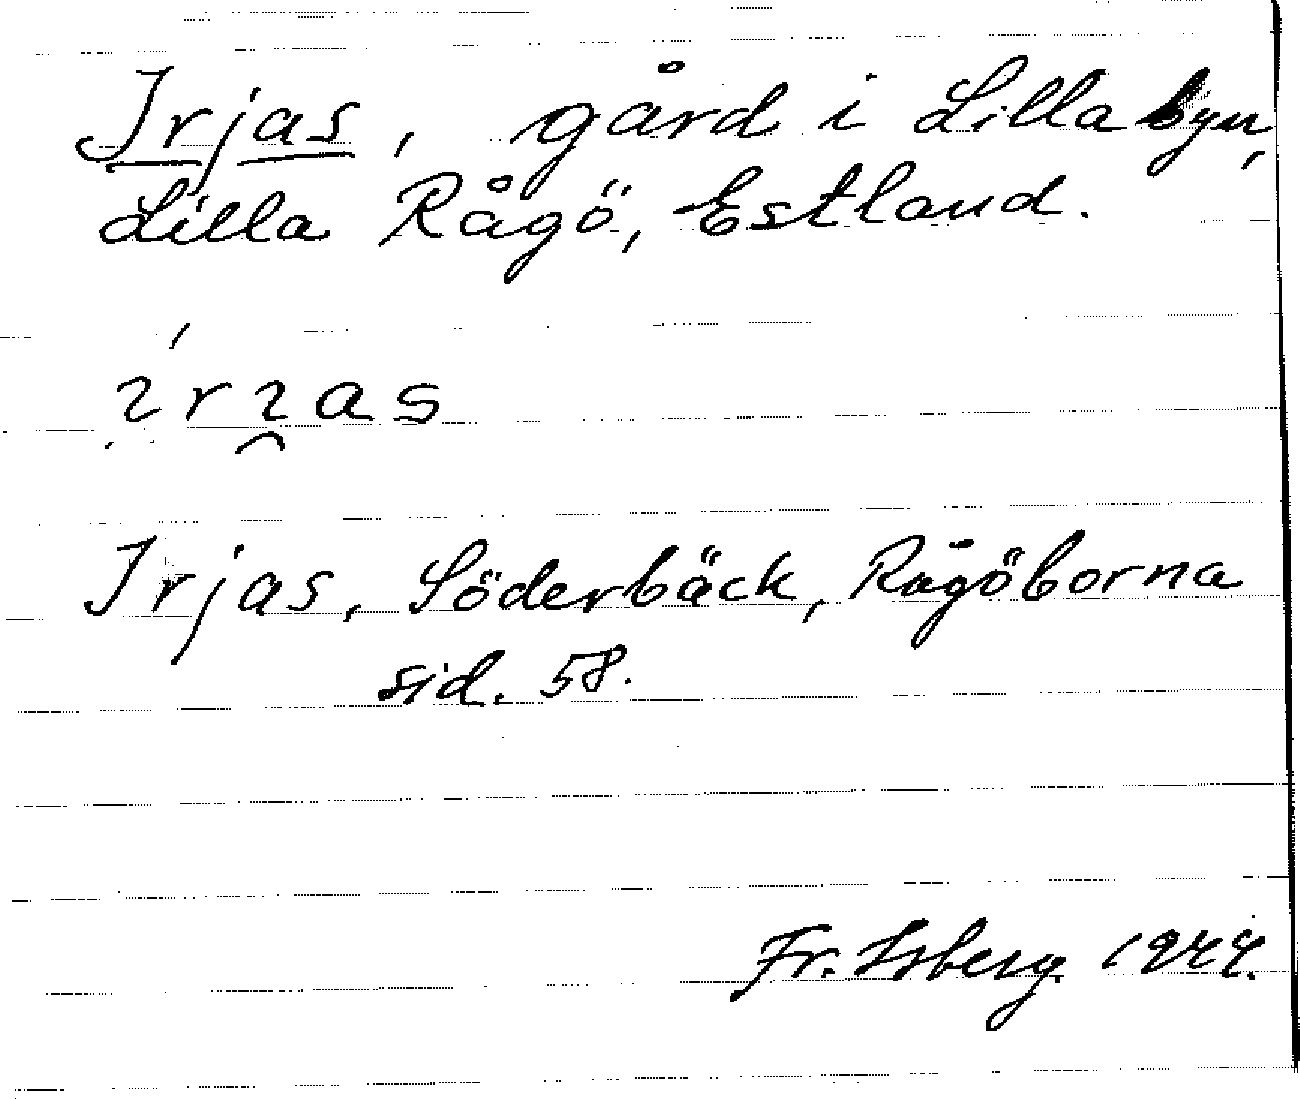 Irjas, gård i Lillabyn,
Lilla Rågö, Estland.
íri̯as
Irjas, Söderbäck, Rågöborna
sid. 58.
Fr. Isberg. 1944.